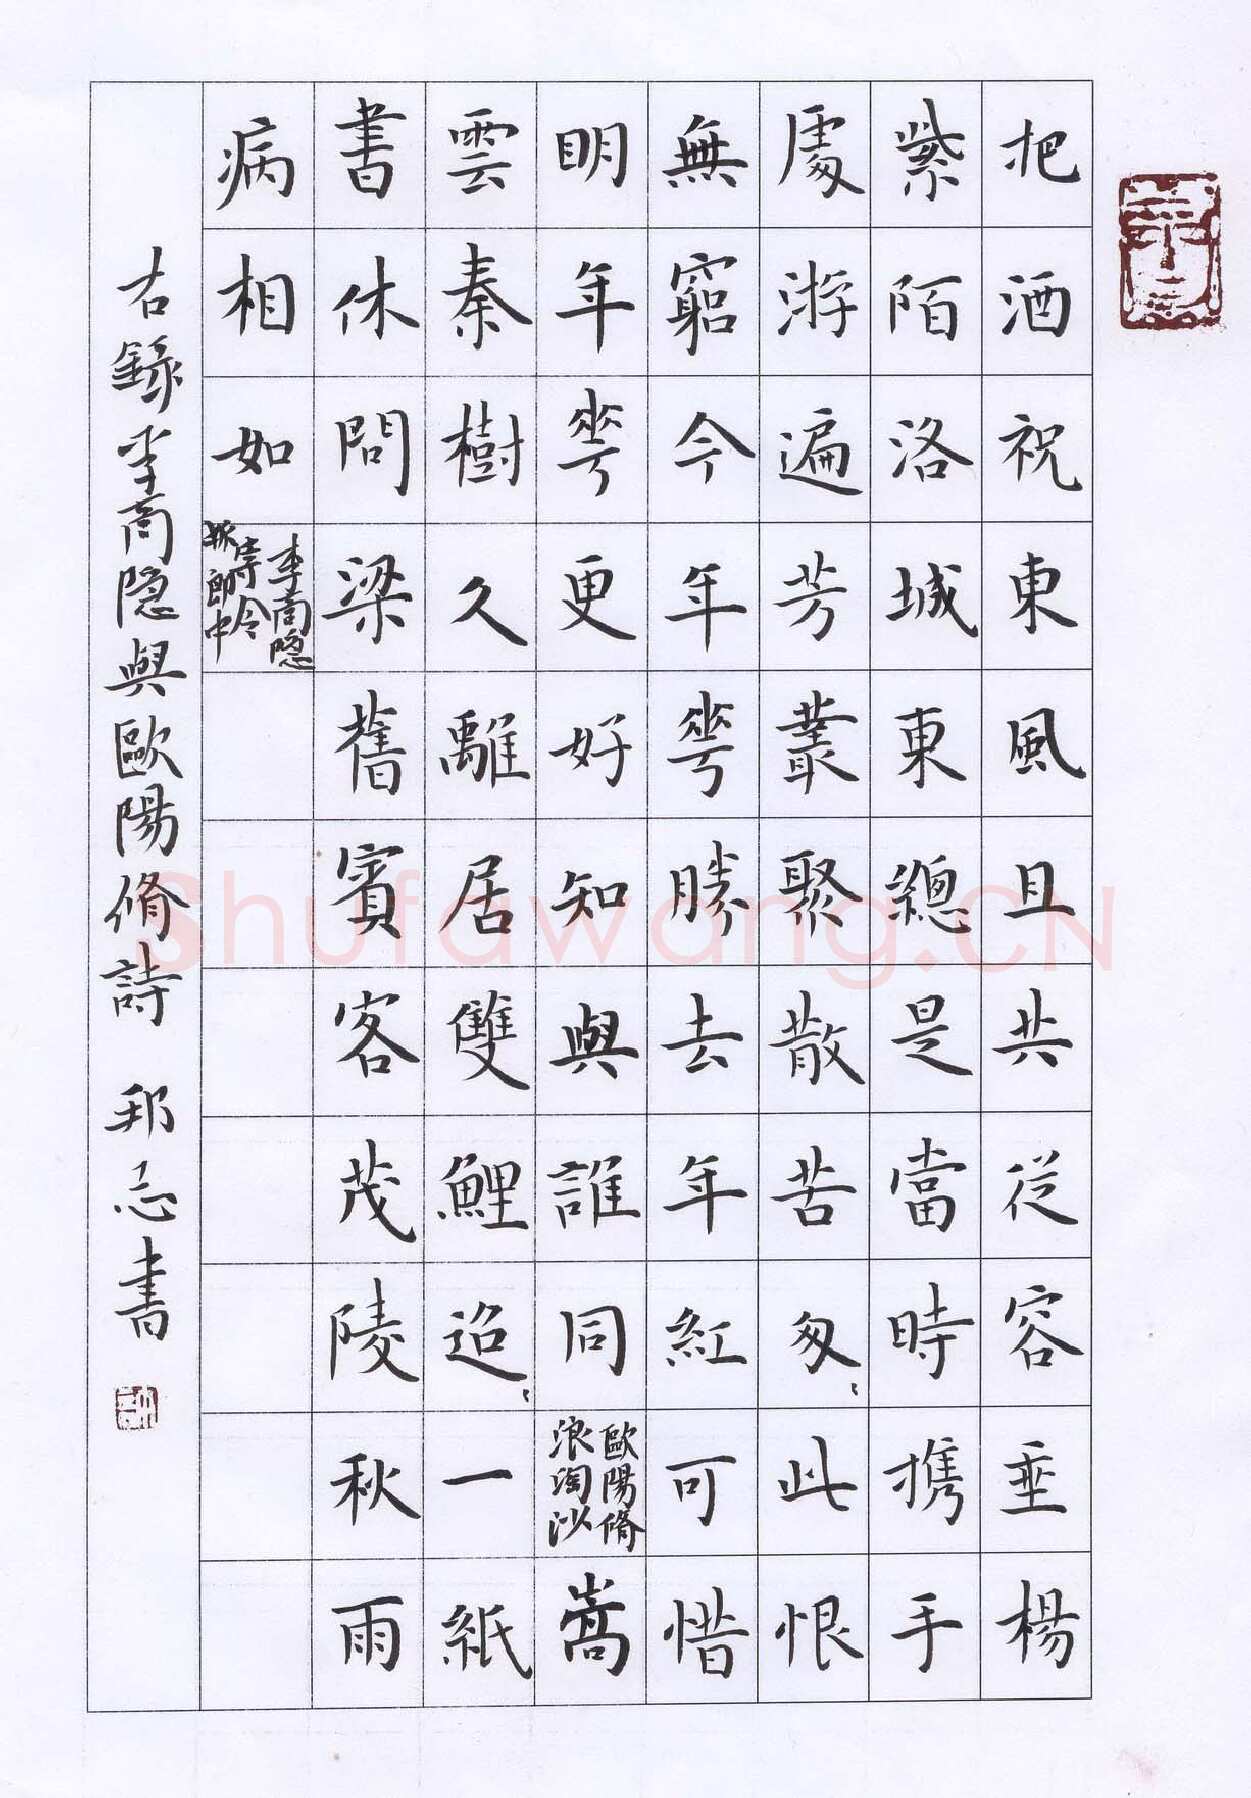 把酒祝東風且共從容垂楊
紫陌洛城東總是當時携手
處游遍芳叢聚散苦匆〻此恨
無窮今年華勝去年紅可惜
明年華更好知與誰同
歐陽脩
浪淘沙
嵩
雲秦樹久離居雙鯉迢〻一紙
書休問梁舊賓客茂陵秋雨
病相如
李商隐
寄令
狐郎中
右録李商隐與歐陽脩詩 邦志書
Shufawang.CN